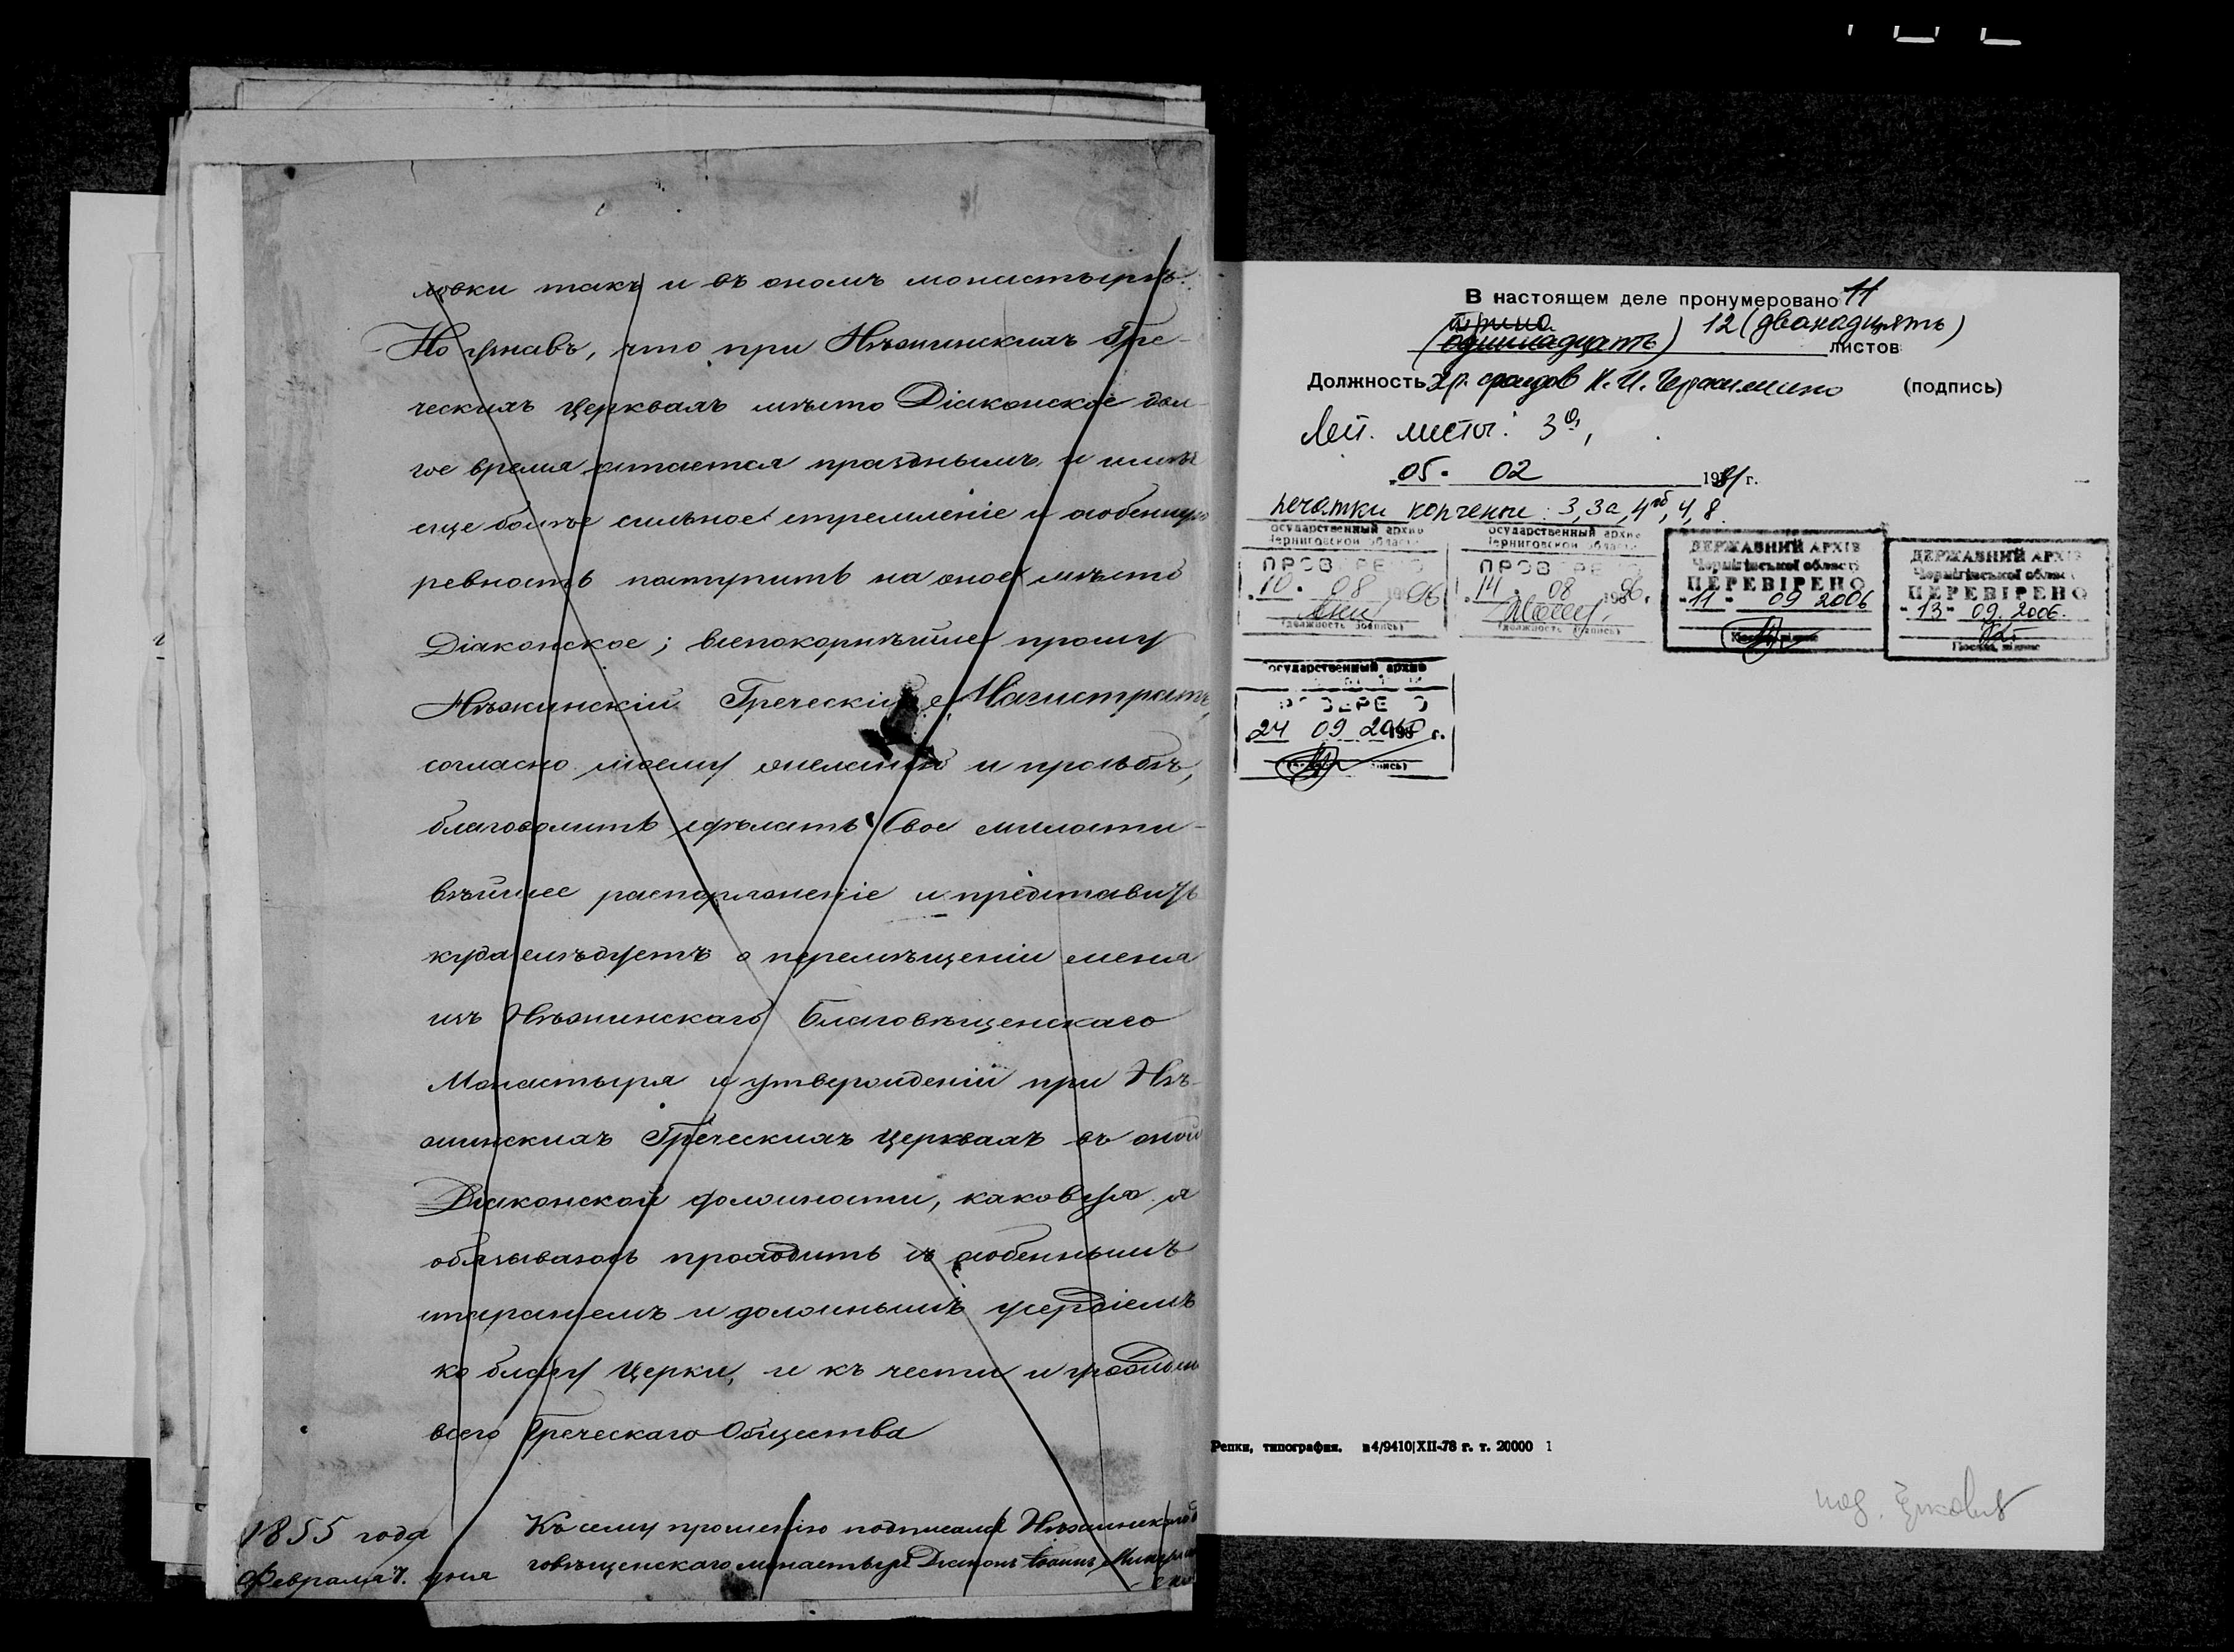 ловки такъ и въ ономъ монастырѣ.
Но узнавъ, что при Нѣжинскихъ Гре-
ческихъ церквахъ мѣсто Діаконское дол-
гое время остается празднымъ и имѣя
еще болѣе сильное стремленіе и особенную
ревность поступить на оное мѣсто
Діаконское; всепокорнѣйше прошу
Нѣжинскій Греческій Магистратъ,
согласно моему желанію и просьбѣ,
благоволить сдѣлать Свое милости-
вѣйшее распоряженіе и представить
куда слѣдуетъ о перемѣщеніи меня
изъ Нѣжинскаго Благовѣщенскаго
Монастыря и утвержденіи при Нѣ-
жинскихъ Греческихъ церквахъ въ оной
Діаконской должности, каковую я
обязываюсь проходить съ особеннымъ
стараніемъ и должнымъ усердіемъ
ко благу Церкви, и къ чести и
всего Греческаго Общества
1855 года
Февраля 7. дня
Къ сему прошенію подписался Нѣжинскаго
говѣщенскаго монастыря Діаконъ Іоаннъ
В настоящем деле пронумеровано 11
(одиннадцать) 12 (двенадцать)
листов
Должность хр. фондов (подпись)
Лит. листы: 3а,
05. 02 1981 г.
печатки копчені: 3, 3а, 4, 8
осударственный архив
Черниговской области
ПРОВЕРЕНО
10. 08 1996
(должность подпись)
осударственный архив
Черниговской области
ПРОВЕРЕНО
14 08 1996 г.
(должность подпись)
ДЕРЖАВНИЙ АРХІВ
Чернігівської області
ПЕРЕВІРЕНО
"11" 09 2006
Посада, підпис
ДЕРЖАВНИЙ АРХІВ
Чернігівської області
ПЕРЕВІРЕНО
"13" 09 2006.
Посада, підпис
осударственный архив
ПРОВЕРЕНО
24 09 г.
Репки, типография. з 4/9410|XII-78 г. т. 20000 1